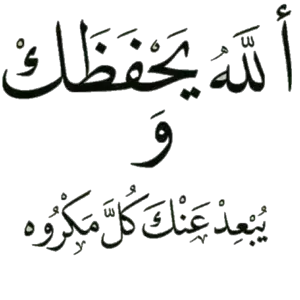 أللهُ يَحْفَظَكْ
وَ
يُبْعِدْ عَنْكَ كُلَّ مَكْرُوه